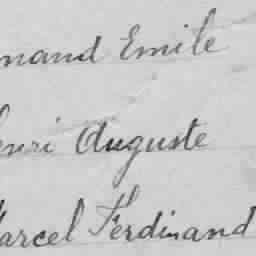 nand Emile
enri Auguste
arcel Ferdinand